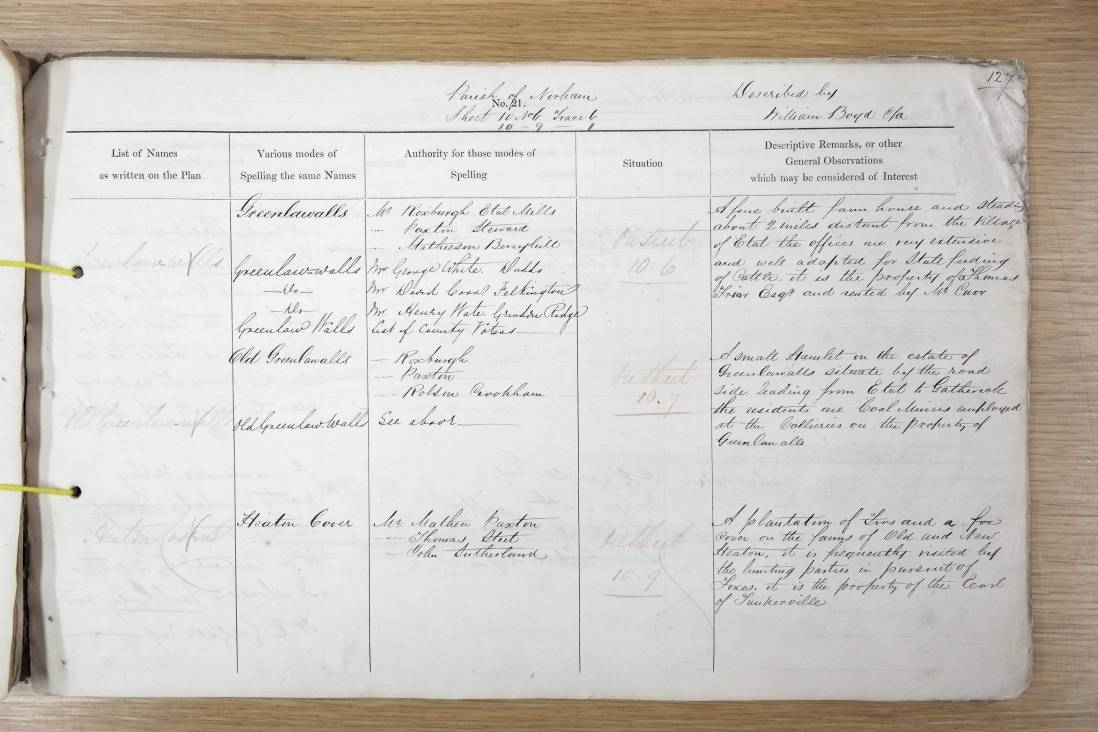 127
Parish of Norham
No. 21.
Sheet 10 No 6 Trace 6
10 - 9 - 1
Described by
William Boyd C/a
List of Names
as written on the Plan
Various modes of
Spelling the same Names
Authority for those modes of
Spelling
Situation
Descriptive Remarks, or other
General Observations
which may be considered of Interest
Greenlawalls
Mr Roxburgh Etal Mills
" Paxton Steward
" Mathieson Berryhill
Greenlaw-walls
Mr George White. Duddo
-Do-
Mr David Carr Felkington
-Do-
Mr Henry Wate. Grindon Ridge
Greenlaw Walls
List of County Voters
On Street
10.6
A fine built farm house and Steading
about 2 miles distant from the Village
of Etal the offices are very extensive
and well adapted for Stall feeding
of Cattle. it is the property of Thomas
Friar Esqr and rented by Mr Carr
Old Greenlaw-walls
Old Greenlawalls
" Roxburgh
" Paxton
" Robson Crookham
Old Greenlaw Walls
See above
On Street
10.7
A small Hamlet on the estate of
Greenlawalls situate by the road
side leading from Etal to Gatherick
the residents are Coal Miners employed
at the Collieries on the property of
Greenlawalls
Heaton Cover
Mr Mathew Paxton
" Thomas Steet
" John Sutherland
On Street
10.9
A plantation of Firs and a fox
cover on the farms of Old and New
Heaton, it is frequently visited by
the hunting parties in pursuit of
Foxes. it is the property of the Earl
of Tankerville